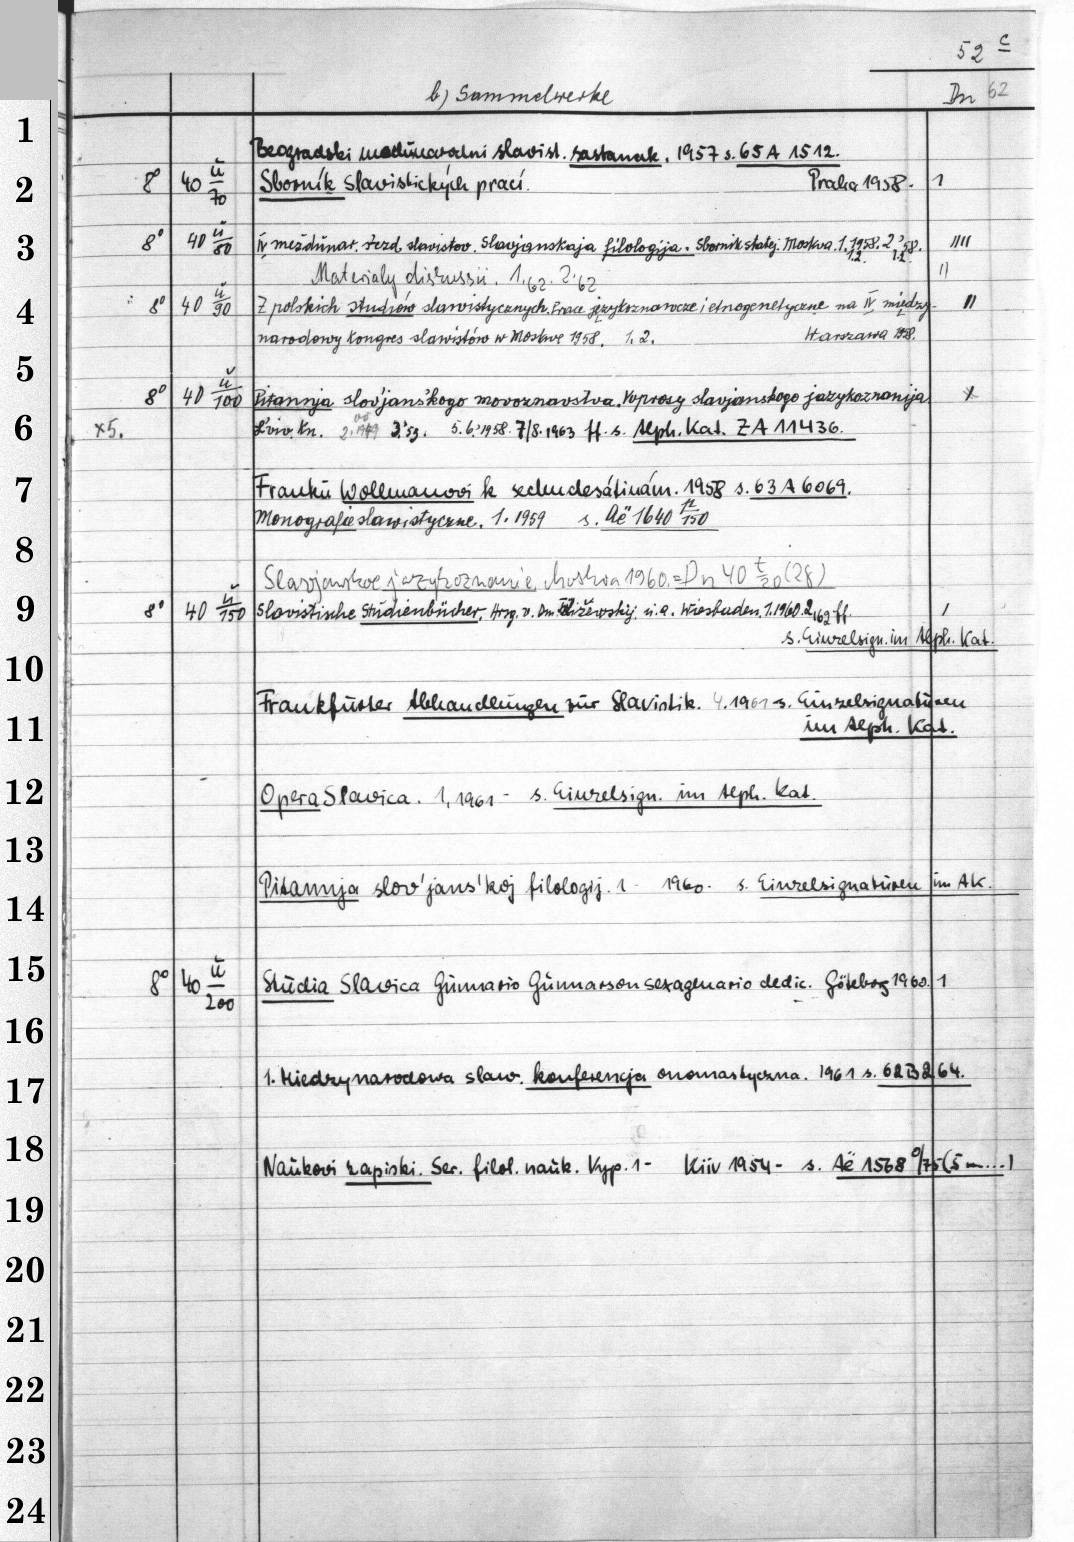 52 c
b) Sammelwerke Dn 62
1
Beogradski međunarodni slavist. sastanak. 1957 s. 65 A 1512.
2 8° 40 ŭ/70 Sborník slavistických prací. Praha 1958. 1
3 8° 40 ŭ/80 IV meždunar. s-ezd slavistov. Slavjanskaja filologija. Sbornik statej. Moskva. 1.1958. 2.'58. 1.2. 1.2. ////
Materialy diskussii. 1.62. 2.'62 //
4 8° 40 ŭ/90 Z polskich studiów slawistycznych. Prace językoznawcze i etnogenetyczne na IV między- //
narodowy kongres slawistów w Moskwie 1958. 1.2. Warszawa 1958.
5 8° 40 ŭ/100 Pitannja slov'jans'kogo movoznavstva. Voprosy slavjanskogo jazykoznanija x
6 x5. L'viv. Kn. 3.'53. 5.6.'1958. 7/8.1963 ff. s. Alph. Kat. ZA 11436.
7 Franku Wollmanovi k sedmdesátinám. 1958 s. 63 A 6069.
Monografie slawistyczne. 1.1959 s. Aë 1640 n/150
8
Slavjanskoe jazykoznanie. Moskva 1960. = Dn 40 t/20 (28)
9 8° 40 ŭ/150 Slavistische Studienbücher. Hrsg. v. Dm. Čiževskij u.a. Wiesbaden. 1.1960. 2,'62 ff. /
s. Einzelsign. im Alph. Kat.
10
Frankfurter Abhandlungen zur Slavistik. 4.1961- s. Einzelsignaturen
11 im Alph. Kat.
12 Opera Slavica. 1,1961- s. Einzelsign. im Alph. Kat.
13
14 Pitannja slov'jans'koj filologij. 1- 1960- s. Einzelsignaturen im AK.
15 8° 40 ŭ/200 Studia Slavica Gunnario Gunnarson sexagenario dedic. Göteborg 1960. 1
16
17 1. Międzynarodowa sław. konferencja onomastyczna. 1961 s. 62 B 264.
18 Naukovi zapiski. Ser. filol. nauk. Vyp. 1- Kiiv 1954- s. Aë 1568 o/75 (5 ...)
19
20
21
22
23
24